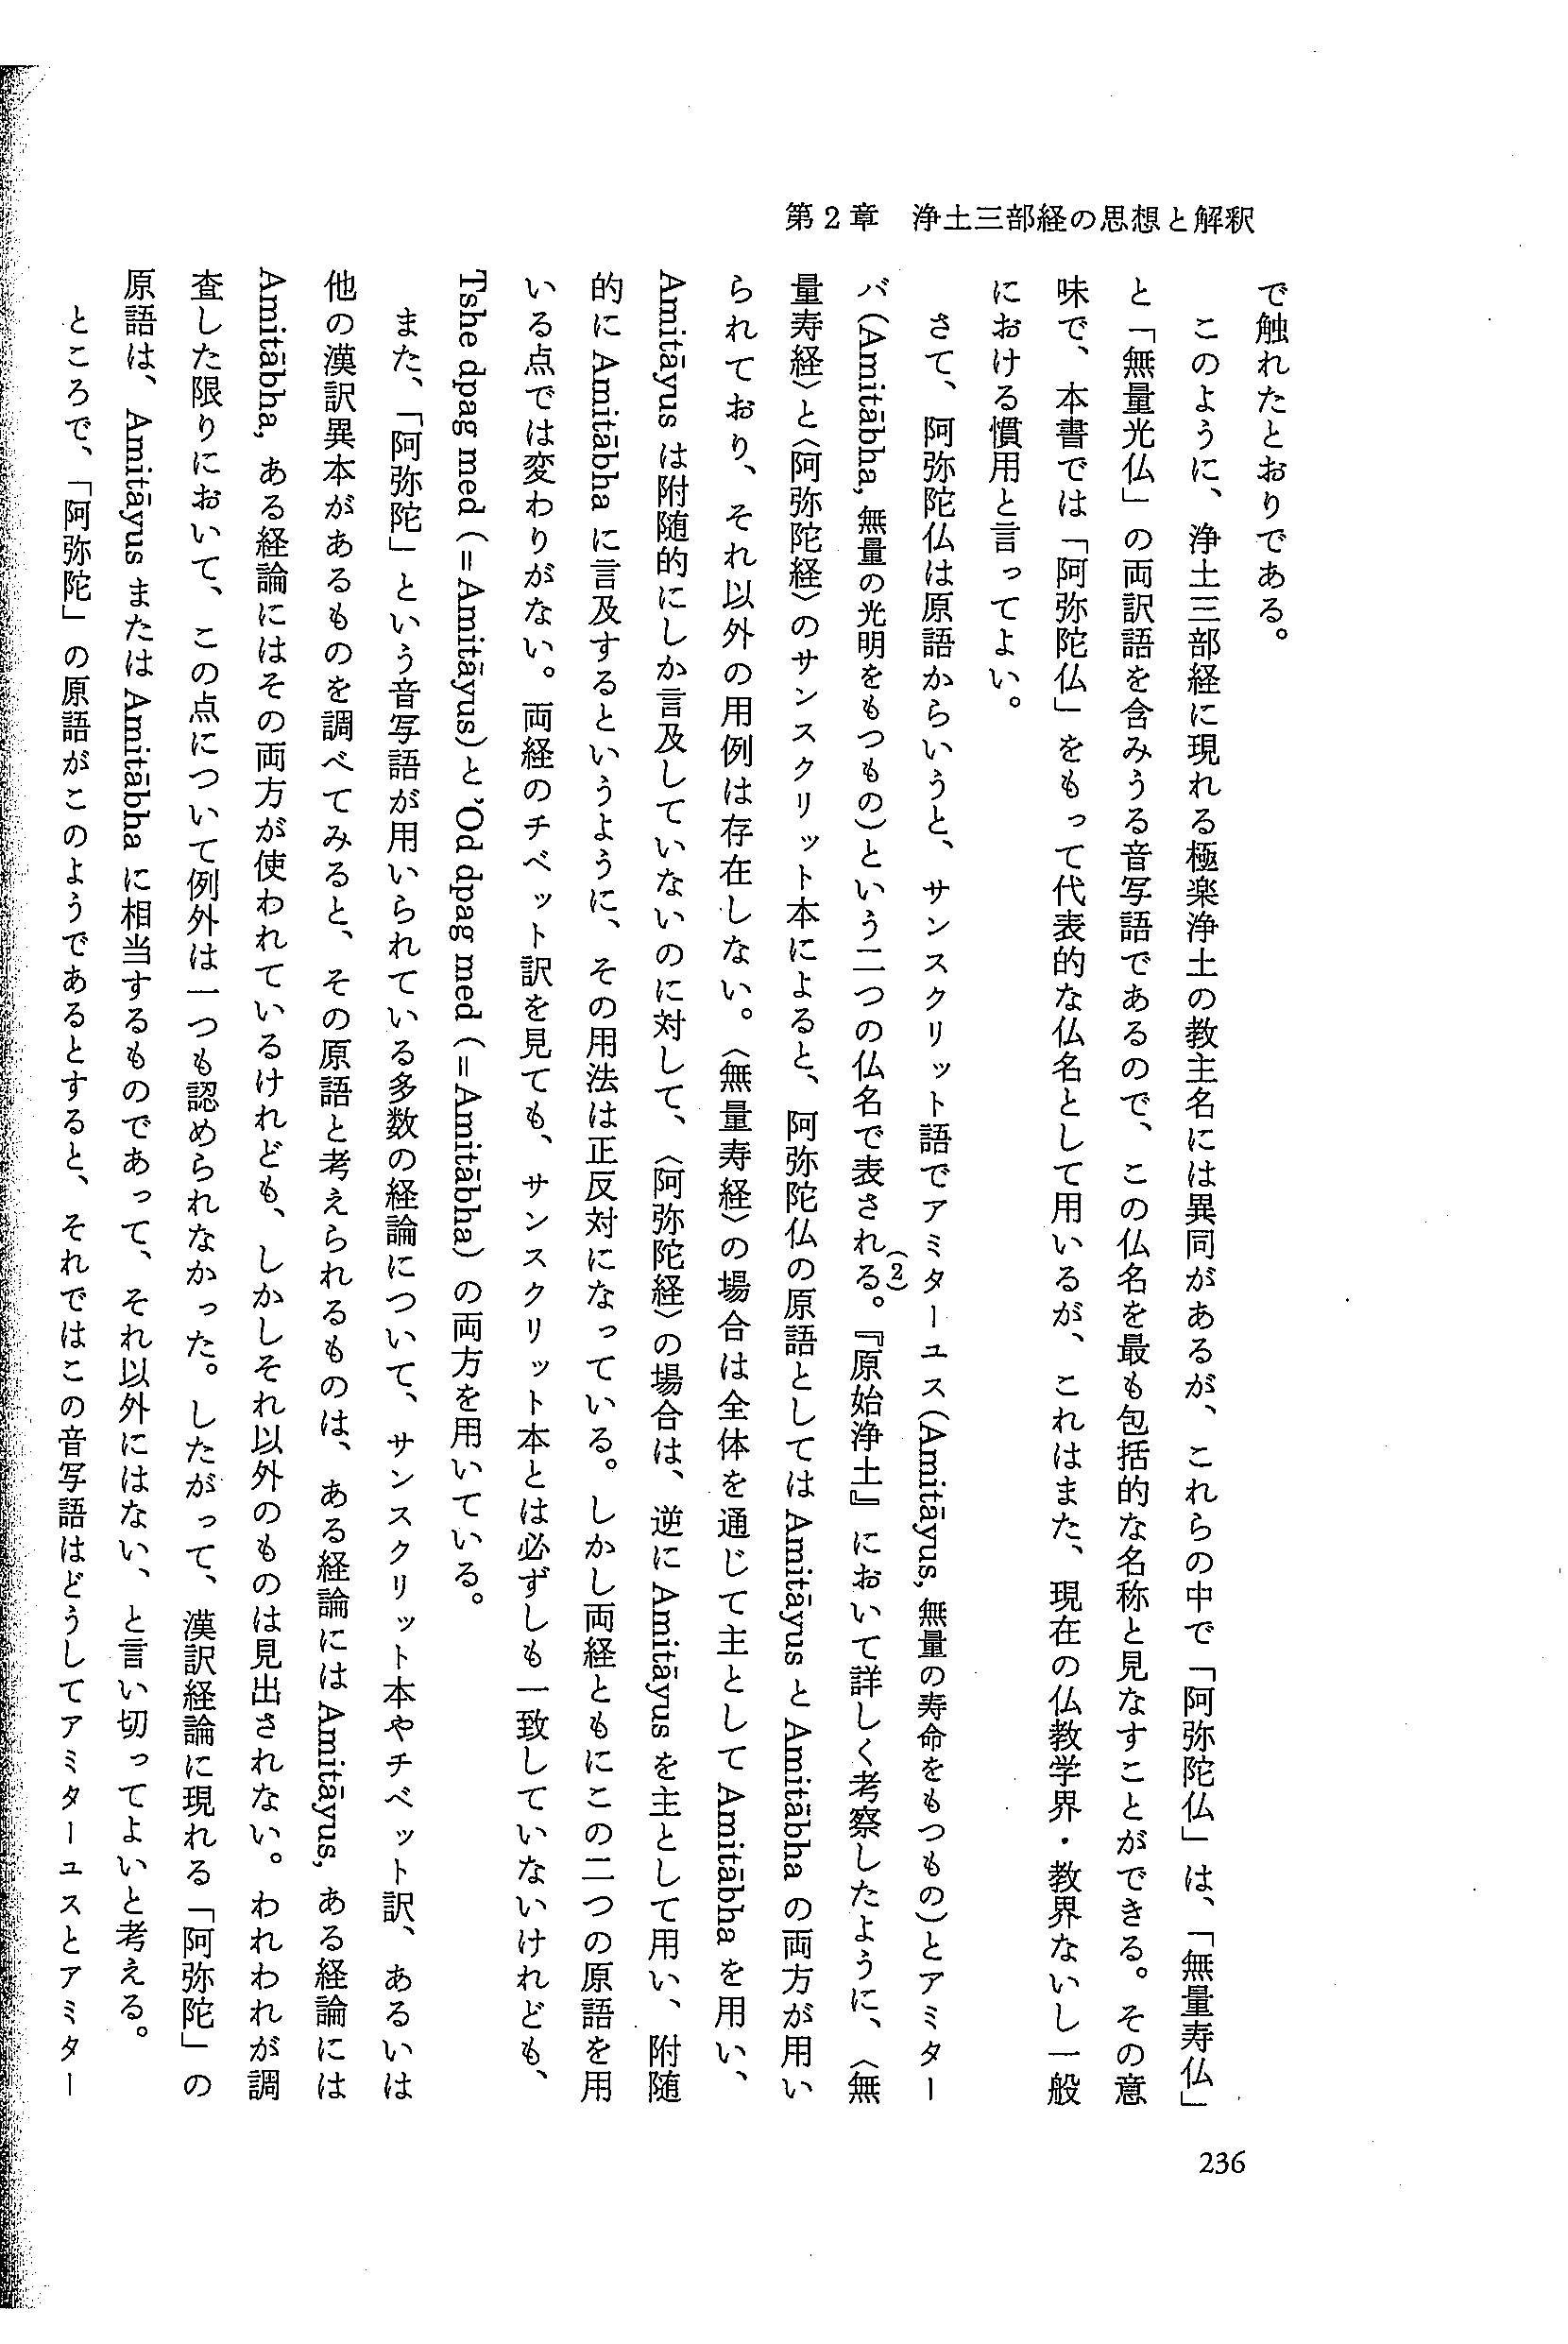 第2章　浄土三部経の思想と解釈
で触れたとおりである。
　このように、浄土三部経に現れる極楽浄土の教主名には異同があるが、これらの中で「阿弥陀仏」は、「無量寿仏」
と「無量光仏」の両訳語を含みうる音写語であるので、この仏名を最も包括的な名称と見なすことができる。その意
味で、本書では「阿弥陀仏」をもって代表的な仏名として用いるが、これはまた、現在の仏教学界・教界ないし一般
における慣用と言ってよい。
　さて、阿弥陀仏は原語からいうと、サンスクリット語でアミターユス(Amitāyus, 無量の寿命をもつもの)とアミター
バ(Amitābha, 無量の光明をもつもの)という二つの仏名で表される(2)。『原始浄土』において詳しく考察したように、〈無
量寿経〉と〈阿弥陀経〉のサンスクリット本によると、阿弥陀仏の原語としては Amitāyus と Amitābha の両方が用い
られており、それ以外の用例は存在しない。〈無量寿経〉の場合は全体を通じて主として Amitābha を用い、
Amitāyus は附随的にしか言及していないのに対して、〈阿弥陀経〉の場合は、逆に Amitāyus を主として用い、附随
的に Amitābha に言及するというように、その用法は正反対になっている。しかし両経ともにこの二つの原語を用
いる点では変わりがない。両経のチベット訳を見ても、サンスクリット本とは必ずしも一致していないけれども、
Tshe dpag med (=Amitāyus)と ’Od dpag med (=Amitābha) の両方を用いている。
　また、「阿弥陀」という音写語が用いられている多数の経論について、サンスクリット本やチベット訳、あるいは
他の漢訳異本があるものを調べてみると、その原語と考えられるものは、ある経論には Amitāyus, ある経論には
Amitābha, ある経論にはその両方が使われているけれども、しかしそれ以外のものは見出されない。われわれが調
査した限りにおいて、この点について例外は一つも認められなかった。したがって、漢訳経論に現れる「阿弥陀」の
原語は、Amitāyus または Amitābha に相当するものであって、それ以外にはない、と言い切ってよいと考える。
　ところで、「阿弥陀」の原語がこのようであるとすると、それではこの音写語はどうしてアミターユスとアミター
236